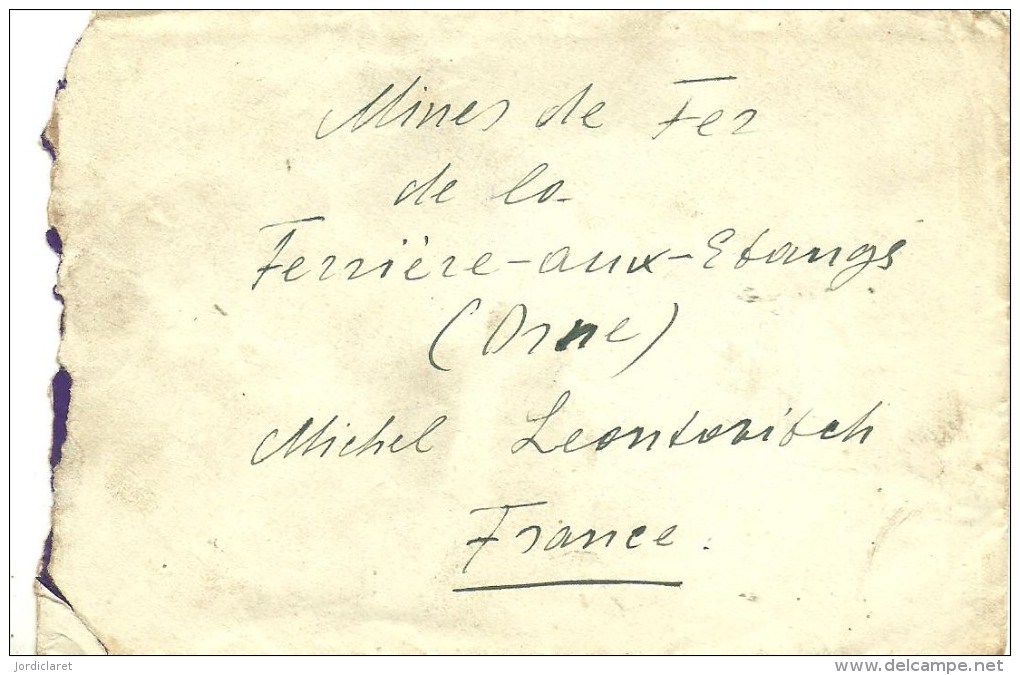 Mines de Fer
de la
Ferrière-aux-Etangs
(Orne)
Michel Leontovitch
France.
jordiclaret
www.delcampe.net